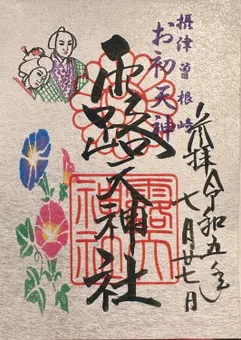 摂津曽根崎
お初天神
奉拝
令和五年
七月廿七日
露天神社
露天
神社